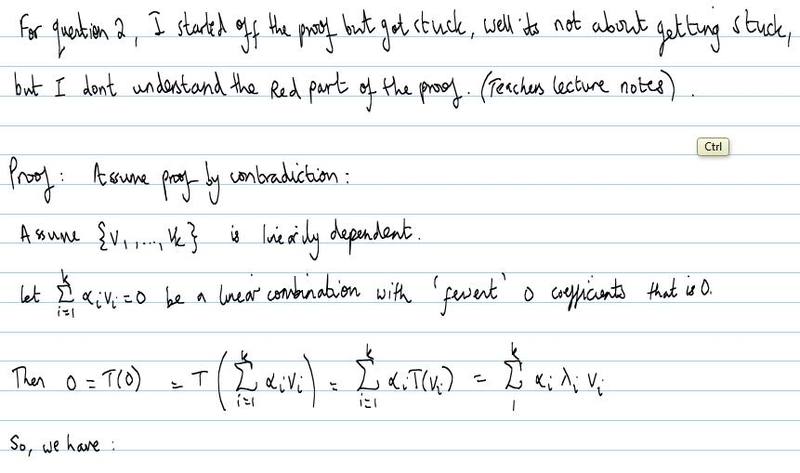 For question 2, I started off the proof but got stuck, well its not about getting stuck,
but I dont understand the Red part of the proof. (Teachers lecture notes).
Ctrl
Proof: Assume proof by contradiction:
Assume {v₁,...,vₖ} is linearily dependent.
let ∑_{i=1}^{k} αᵢvᵢ=0 be a linear combination with 'fewest' 0 coefficients that is 0.
Then 0 = T(0) = T(∑_{i=1}^{k} αᵢvᵢ) = ∑_{i=1}^{k} αᵢT(vᵢ) = ∑_{1}^{k} αᵢ λᵢ vᵢ
So, we have: